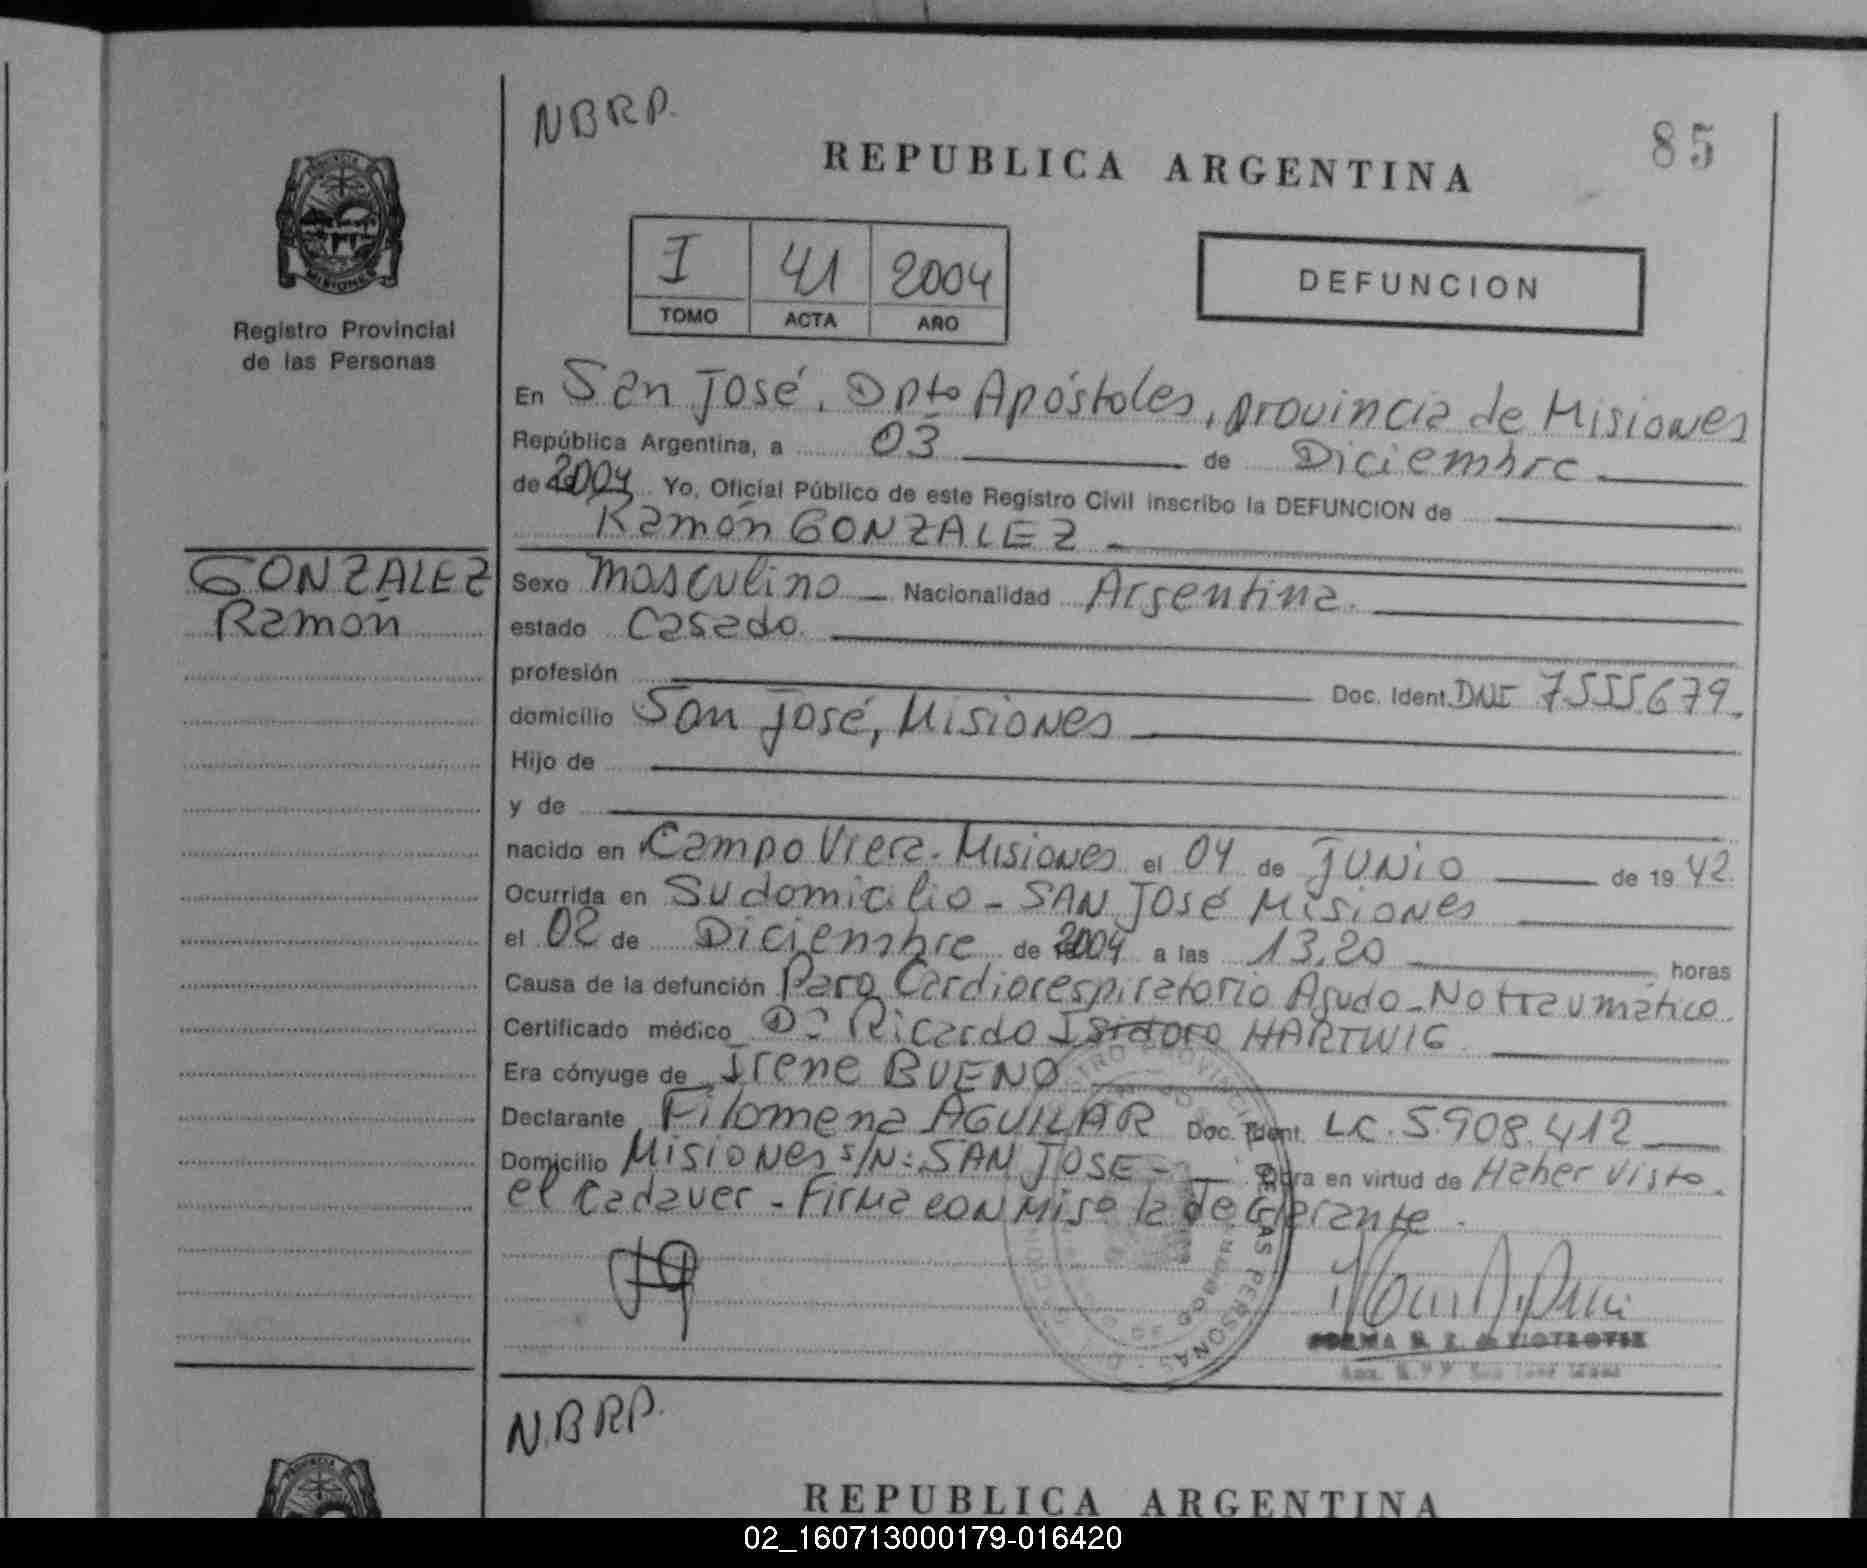 NBRP.
REPUBLICA ARGENTINA
85
I 41 2004
TOMO ACTA AÑO
DEFUNCION
Registro Provincial
de las Personas
En San José, Dpto Apóstoles, provincia de Misiones
República Argentina, a 03 de Diciembre
de 2004 Yo, Oficial Público de este Registro Civil inscribo la DEFUNCION de
Ramón GONZALEZ
GONZALEZ
Ramón
Sexo masculino Nacionalidad Argentina.
estado Casado
profesión Doc. Ident. DNI 7555679.
domicilio San José, Misiones
Hijo de
y de
nacido en Campo Viera. Misiones el 04 de JUNIO de 1942.
Ocurrida en Su domicilio - SAN JOSÉ MISIONES
el 02 de Diciembre de 2004 a las 13,20 horas
Causa de la defunción Paro Cardiorespiratorio Agudo - No traumático.
Certificado médico Dr Ricardo Isidoro HARTWIG.
Era cónyuge de Irene BUENO
Declarante Filomena AGUILAR Doc. Ident. LC. 5.908.412
Domicilio Misiones s/N: SAN JOSE - Obra en virtud de Haber visto
el Cadaver - Firma conmigo la declarante.
REGISTRO PROVINCIAL DE LAS PERSONAS
NORMA
N.BRP.
REPUBLICA ARGENTINA
02_160713000179-016420